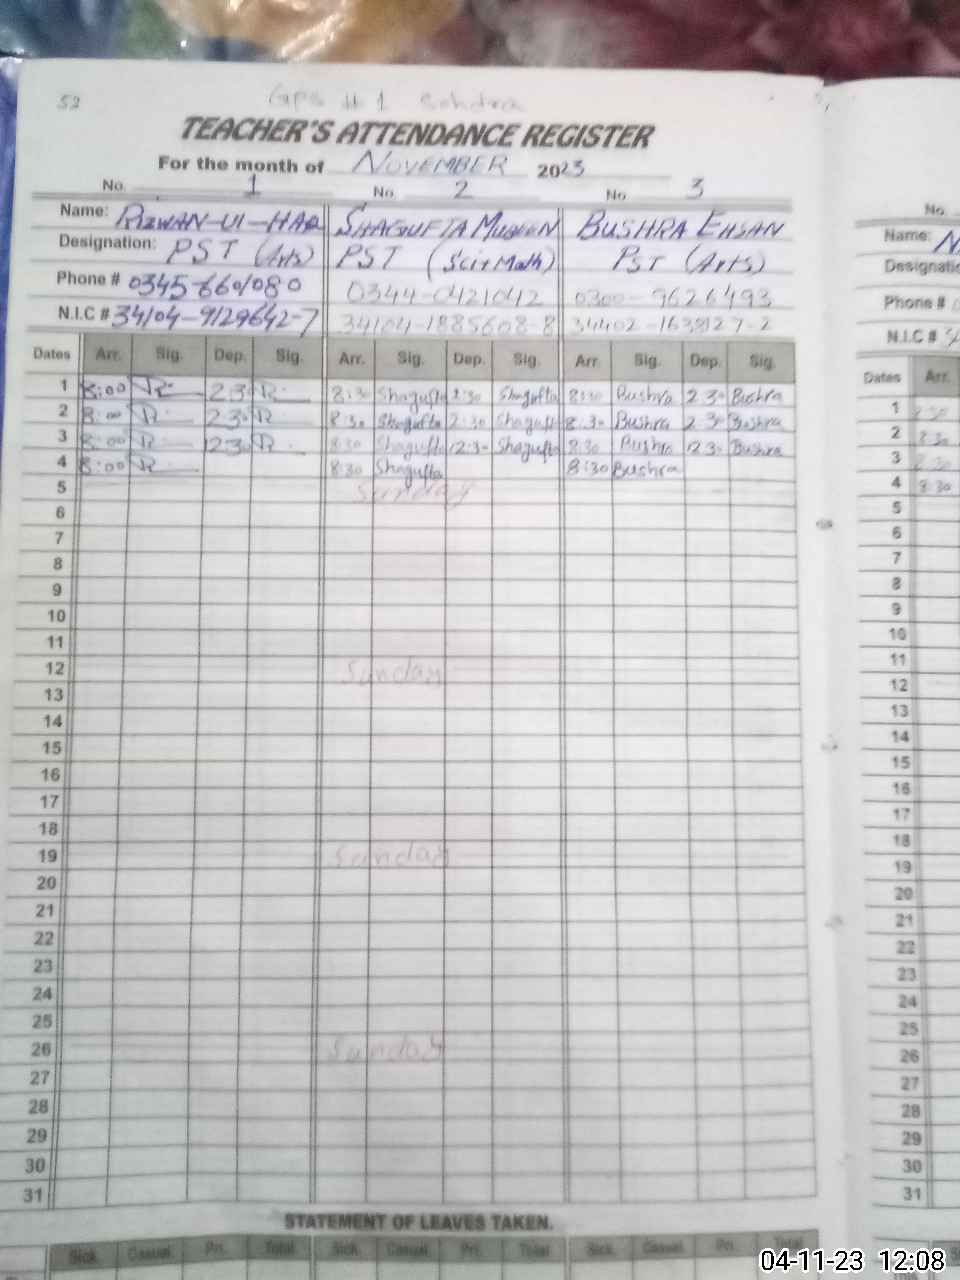 52
GPS # 1 Sohdra
TEACHER'S ATTENDANCE REGISTER
For the month of NOVEMBER 2023
No. 1 No. 2 No. 3
Name: RIZWAN-UL-HAQ SHAGUFTA MUBEEN BUSHRA EHSAN
Designation: PST (Arts) PST (Sci+Math) PST (Arts)
Phone # 0344-0421042 0300-9626493
N.I.C # 34104-9129642-7 34104-1885608-8
Dates Arr. Sig. Dep. Sig. Arr. Sig. Dep. Sig. Arr Sig. Dep. Sig.
1 8:00 R. 2:30 R. 8:30 Shagufta 2:30 Shagufta 8:30 Bushra 2:30 Bushra
2 8:00 R. 2:30 R. 8:30 Shagufta 2:30 Shagufta 8:30 Bushra 2:30 Bushra
3 8:00 R. 12:30 R. 8:30 Shagufta 12:30 Shagufta 8:30 Bushra 12:30 Bushra
4 8:00 R. 8:30 Shagufta 8:30 Bushra
5 Sunday
6
7
8
9
10
11
12 Sunday
13
14
15
16
17
18
19 Sunday
20
21
22
23
24
25
26 Sunday
27
28
29
30
31
STATEMENT OF LEAVES TAKEN.
Sick. Casual. Pri. Total. Sick. Casual. Pri. Total Sick. Casual. Pri. Total
No.
Name: N
Designatio
Phone #
N.I.C #
Dates Arr.
1
2 8:30
3
4 8:30
5
6
7
8
9
10
11
12
13
14
15
16
17
18
19
20
21
22
23
24
25
26
27
28
29
30
31
04-11-23 12:08